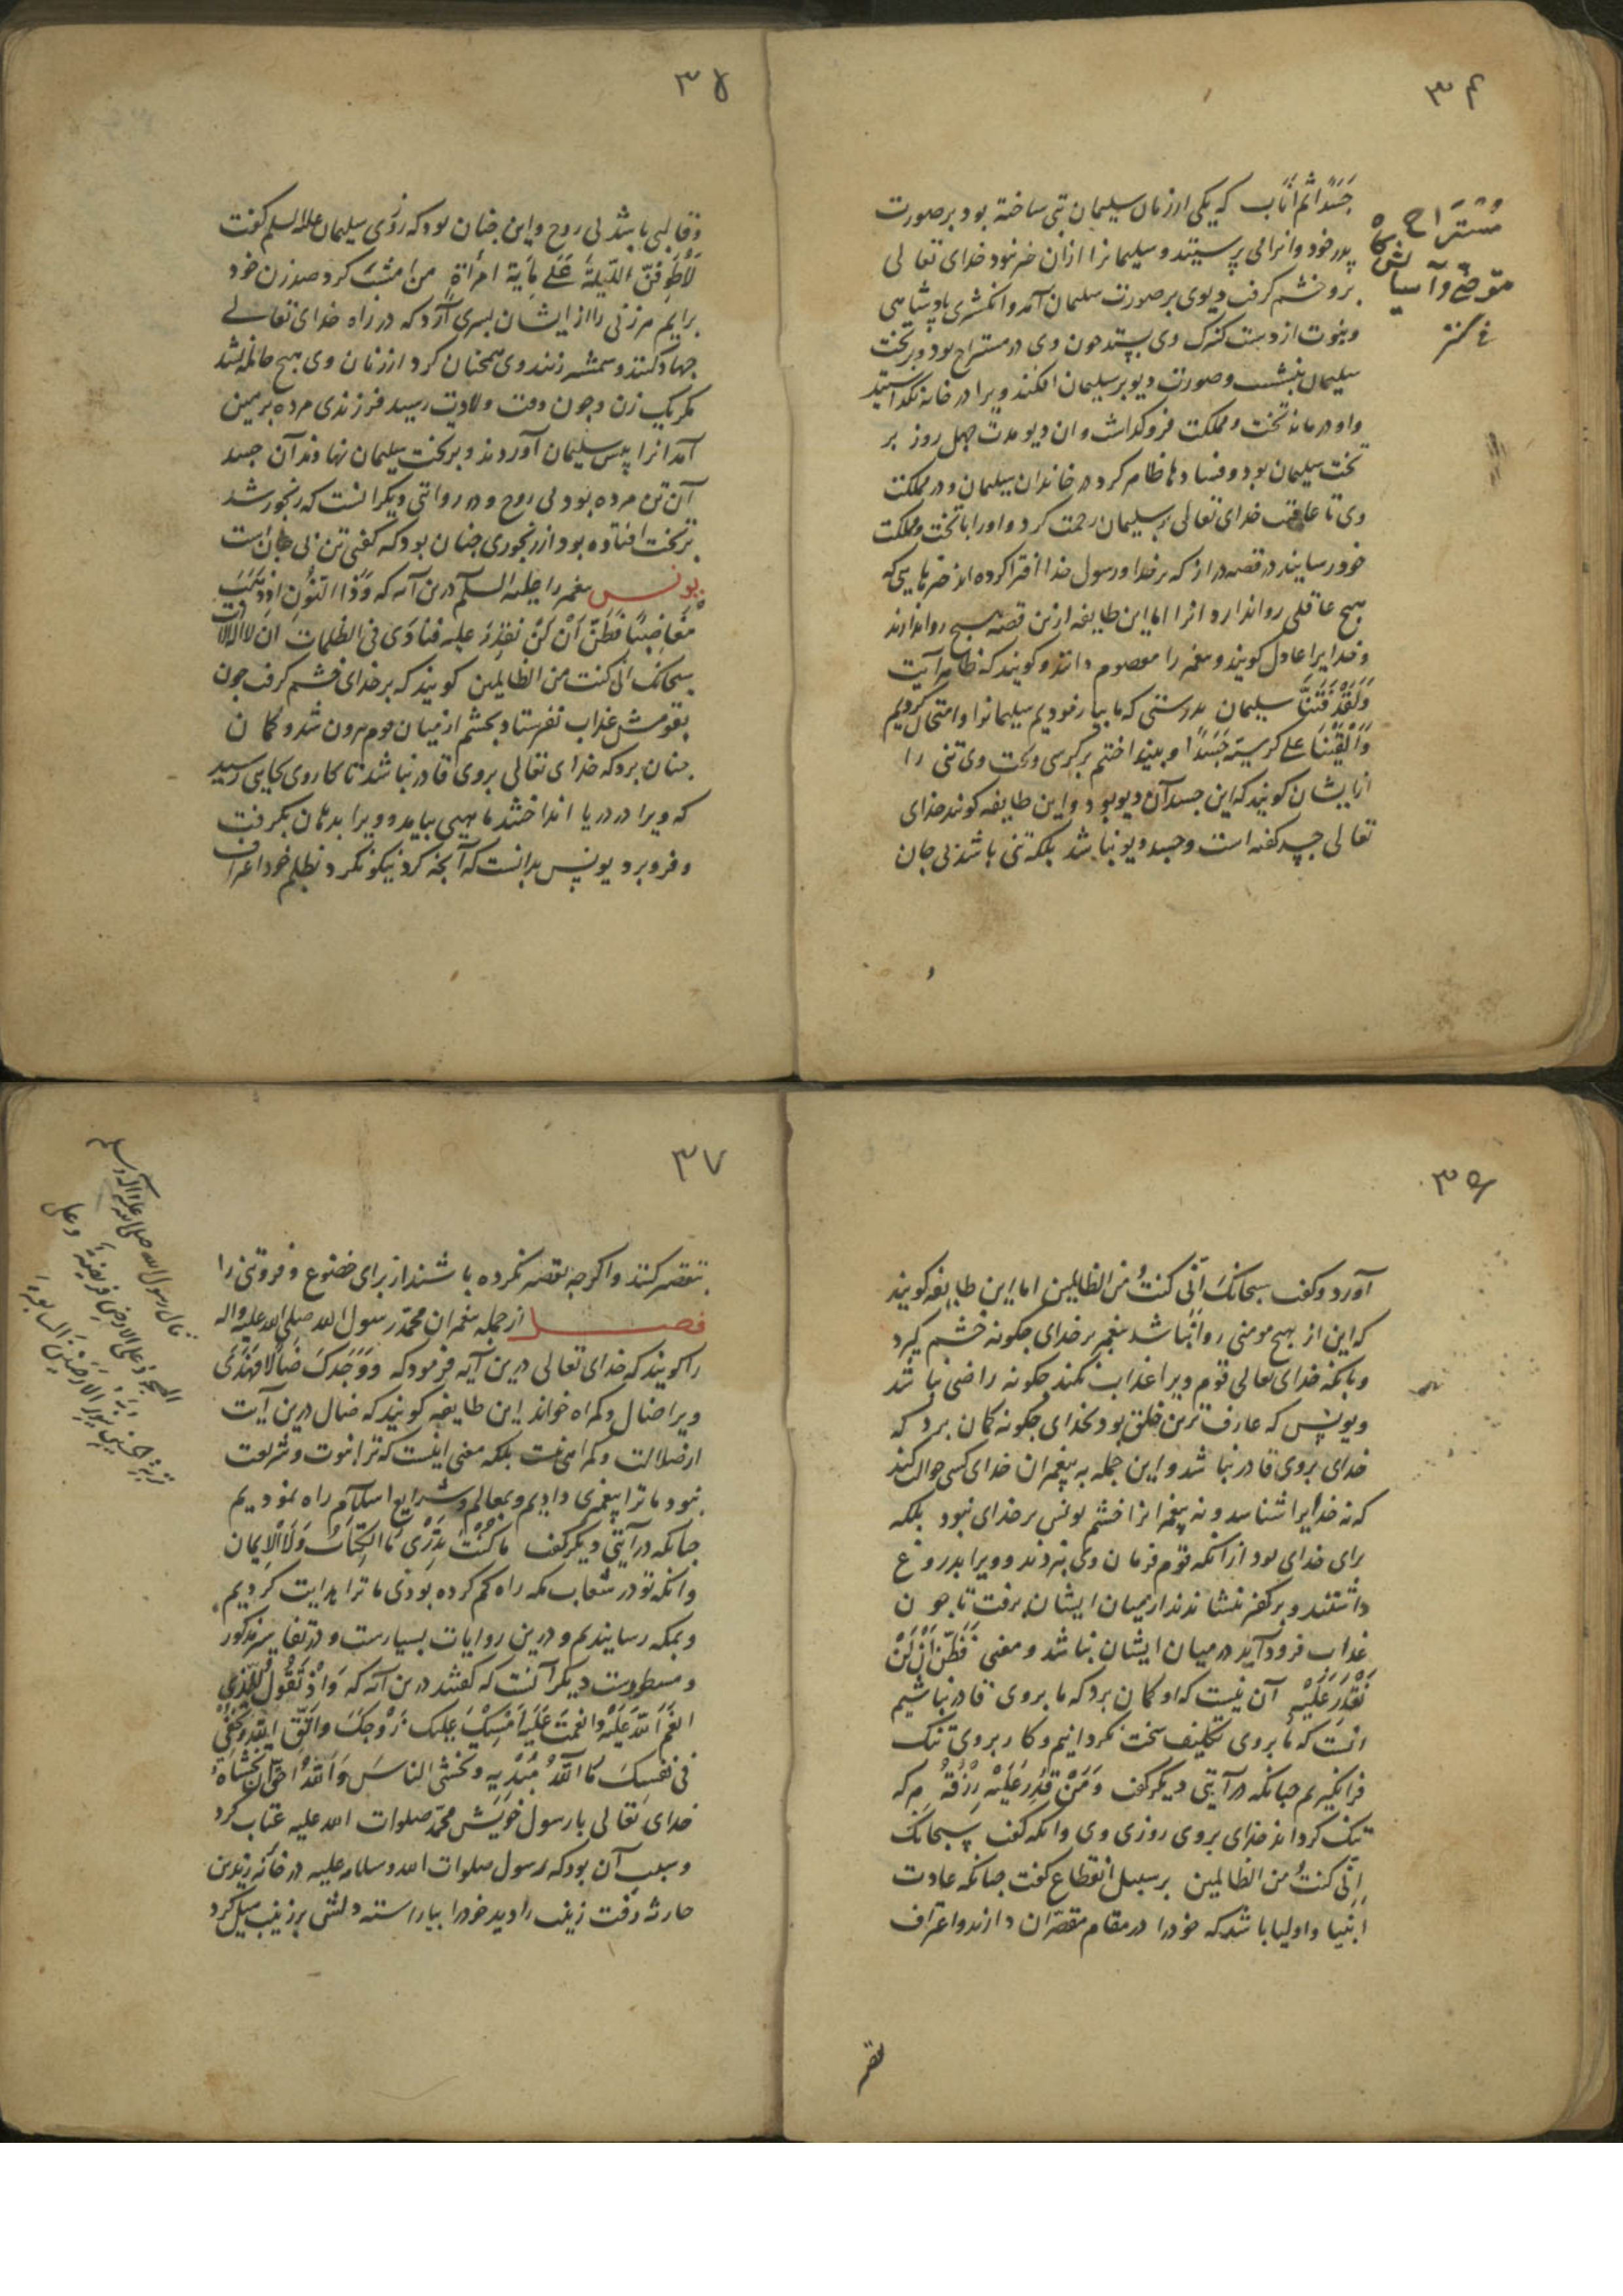 ۳۴
جَسَدًا ثم اناب که یکی از زنان سلیمان بتی ساخته بود بر صورت
پدر خود وانرا می پرستیدند و سلیمانرا از آن خبر نبود خدای تعالی
برو خشم گرفت دیوی بر صورت سلیمان آمد و انگشتری پادشاهی
و نبوت از دست کنیزک وی بستد چون وی در مستراح بود و بر تخت
سلیمان بنشست و صورت دیو بر سلیمان افکند ویرا در خانه نگذاشتند
واو درمانده تخت و مملکت فروگذاشت و ان دیو مدت چهل روز بر
تخت سلیمان بود و فسادها ظاهر کرد در خاندان سلیمان و در مملکت
وی تا عاقبت خدای تعالی بر سلیمان رحمت کرد و اورا با تخت و مملکت
خود رسانید در قصه دراز که بر خدا و رسول خدا افترا کرده اند
هیچ عاقلی روا ندارد انرا اما این طایفه ازین قصه هیچ روا ندارند
و خدایرا عادل گویند و پیغمبر را معصوم دانند و گویند که ظاهر آیت
وَلَقَدْ فَتَنَّا سلیمان بدرستی که ما بیازمودیم سلیمانرا وامتحان کردیم
وَاَلْقَیْنَا علی کرسیّه جَسَدًا و بینداختیم بر کرسی و تخت وی تنی را
ازایشان گویند که این جسد آن دیو بود و این طایفه گویند خدای
تعالی جسد گفته است و جسد دیو نباشد بلکه تنی باشد بی جان
مُسْتَرَاح
موضع آسایش
۳۵
وقالبی باشد بی روح و این چنان بود که روزی سلیمان علیه السلم گفت
لَاَطُوفَنَّ اللّیلةَ عَلی مِایَة امرأةٍ من امشب گرد صد زن خود
برایم هر زنی را از ایشان پسری آرد که در راه خدای تعالی
جهاد کنند و شمشیر زنند وی همچنان کرد از زنان وی هیچ حامله نشد
مگر یک زن و چون وقت ولادت رسید فرزندی مرده بر زمین
آمد انرا پیش سلیمان آوردند و بر تخت سلیمان نهادند آن جسد
آن تن مرده بود بی روح و در روایتی دیگر انست که رنجور شد
بر تخت افتاده بود از رنجوری چنان بود که گفتی تن بی جان است
یونس پیغمبر را علیه السلم درین آیه که وَذَا النُّونِ اِذْ ذَهَبَ
مُغَاضِبًا فَظَنَّ اَنْ لَنْ نَقْدِرَ علیه فنادی فی الظلمات ان لا اله الا انت
سبحانک انی کنت من الظالمین گویند که بر خدای خشم گرفت چون
بقومش عذاب نفرستاد بخشم از میان قوم بیرون شد و گمان
چنان برد که خدای تعالی بروی قادر نباشد تا کار وی بجایی رسید
که ویرا در دریا انداختند ماهیی بیامد و ویرا بدهان بگرفت
و فرو برد یونس بدانست که آنچه کرد نیکو نکرد بظلم خود اعتراف
۳۶
آورد و گفت سبحانَکَ اِنّی کنتُ من الظالمین اما این طایفه گویند
که این از هیچ مومنی روا نباشد پیغمبر بر خدای چگونه خشم گیرد
و بانکه خدای تعالی قوم ویرا عذاب نکند چگونه راضی نباشد
و یونس که عارف ترین خلق بود بخدای چگونه گمان برد که
خدای بروی قادر نباشد و این جمله به پیغمبران خدای کسی حوالت کند
که نه خدایرا شناسد و نه پیغمبرانرا خشم یونس بر خدای نبود بلکه
برای خدای بود ازآنکه قوم فرمان وی نبردند و ویرا بدروغ
داشتند و بر کفر بنشاندند از میان ایشان برفت تا چون
عذاب فرود آید در میان ایشان نباشد و معنی فَظَنَّ اَنْ لَنْ
نَقْدِرَ عَلَیْهِ آن نیست که او گمان برد که ما بروی قادر نباشیم
انست که ما بروی تکلیف سخت نگردانیم و کار بروی تنگ
فرانگیریم چنانکه در آیتی دیگر گفت وَمَنْ قُدِرَ عَلَیْهِ رِزْقُهُ هر که
تنگ گرداند خدای بروی روزی وی وانکه گفت سبحانک
اِنّی کنتُ من الظالمین بر سبیل انقطاع گفت چنانکه عادت
انبیا و اولیا باشد که خودرا در مقام مقصّران دارند و اعتراف
۳۷
بتقصیر کنند و اگرچه تقصیر نکرده باشند از برای خضوع و فروتنی را
فصل از جمله پیغمبران محمّد رسول الله صلی الله علیه واله
را گویند که خدای تعالی درین آیه فرمود که وَوَجَدَکَ ضَالًّا فَهَدَی
ویرا ضال و گمراه خواند این طایفه گویند که ضال درین آیت
از ضلالت و گمراهی نیست بلکه معنی اینست که ترا نبوت و شریعت
نبود ما ترا پیغمبری دادیم و بمعالم و شرایع اسلام راه نمودیم
چنانکه در آیتی دیگر گفت مَا کُنْتَ تَدْرِی مَا الکِتَابُ وَلَا الْاِیمَان
وانکه تو در شعاب مکه راه گم کرده بودی ما ترا هدایت کردیم
و بمکه رسانیدیم و درین روایات بسیارست و در تفاسیر مذکور
و مسطورست دیگر آنست که گفتند درین آیه که وَاِذْ تَقُولُ لِلَّذِی
اَنْعَمَ اللهُ عَلَیْهِ وانعمتَ عَلَیْهِ اَمْسِکْ علیک زَوْجَکَ واتّقِ الله وَتُخْفِی
فی نَفْسِکَ مَا اللهُ مُبْدِیهِ وتخشی الناسَ وَاللهُ اَحَقُّ اَن تَخْشَاهُ
خدای تعالی با رسول خویش محمّد صلوات الله علیه عتاب کرد
و سبب آن بود که رسول صلوات الله و سلامه علیه در خانه زید بن
حارثه رفت زینب را دید خودرا بیاراسته دلش بر زینب میل کرد
قال رسول الله صلی الله علیه وآله وسلم
السجود علی الارض فریضة وعلی